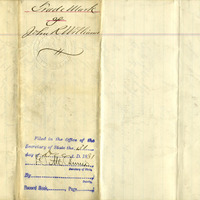 Trade Mark
of
John R. Williams
Filed in the Office of the
Secretary of State the 31
day of A. D. 1881
Secretary of State
By
Record Book, Page